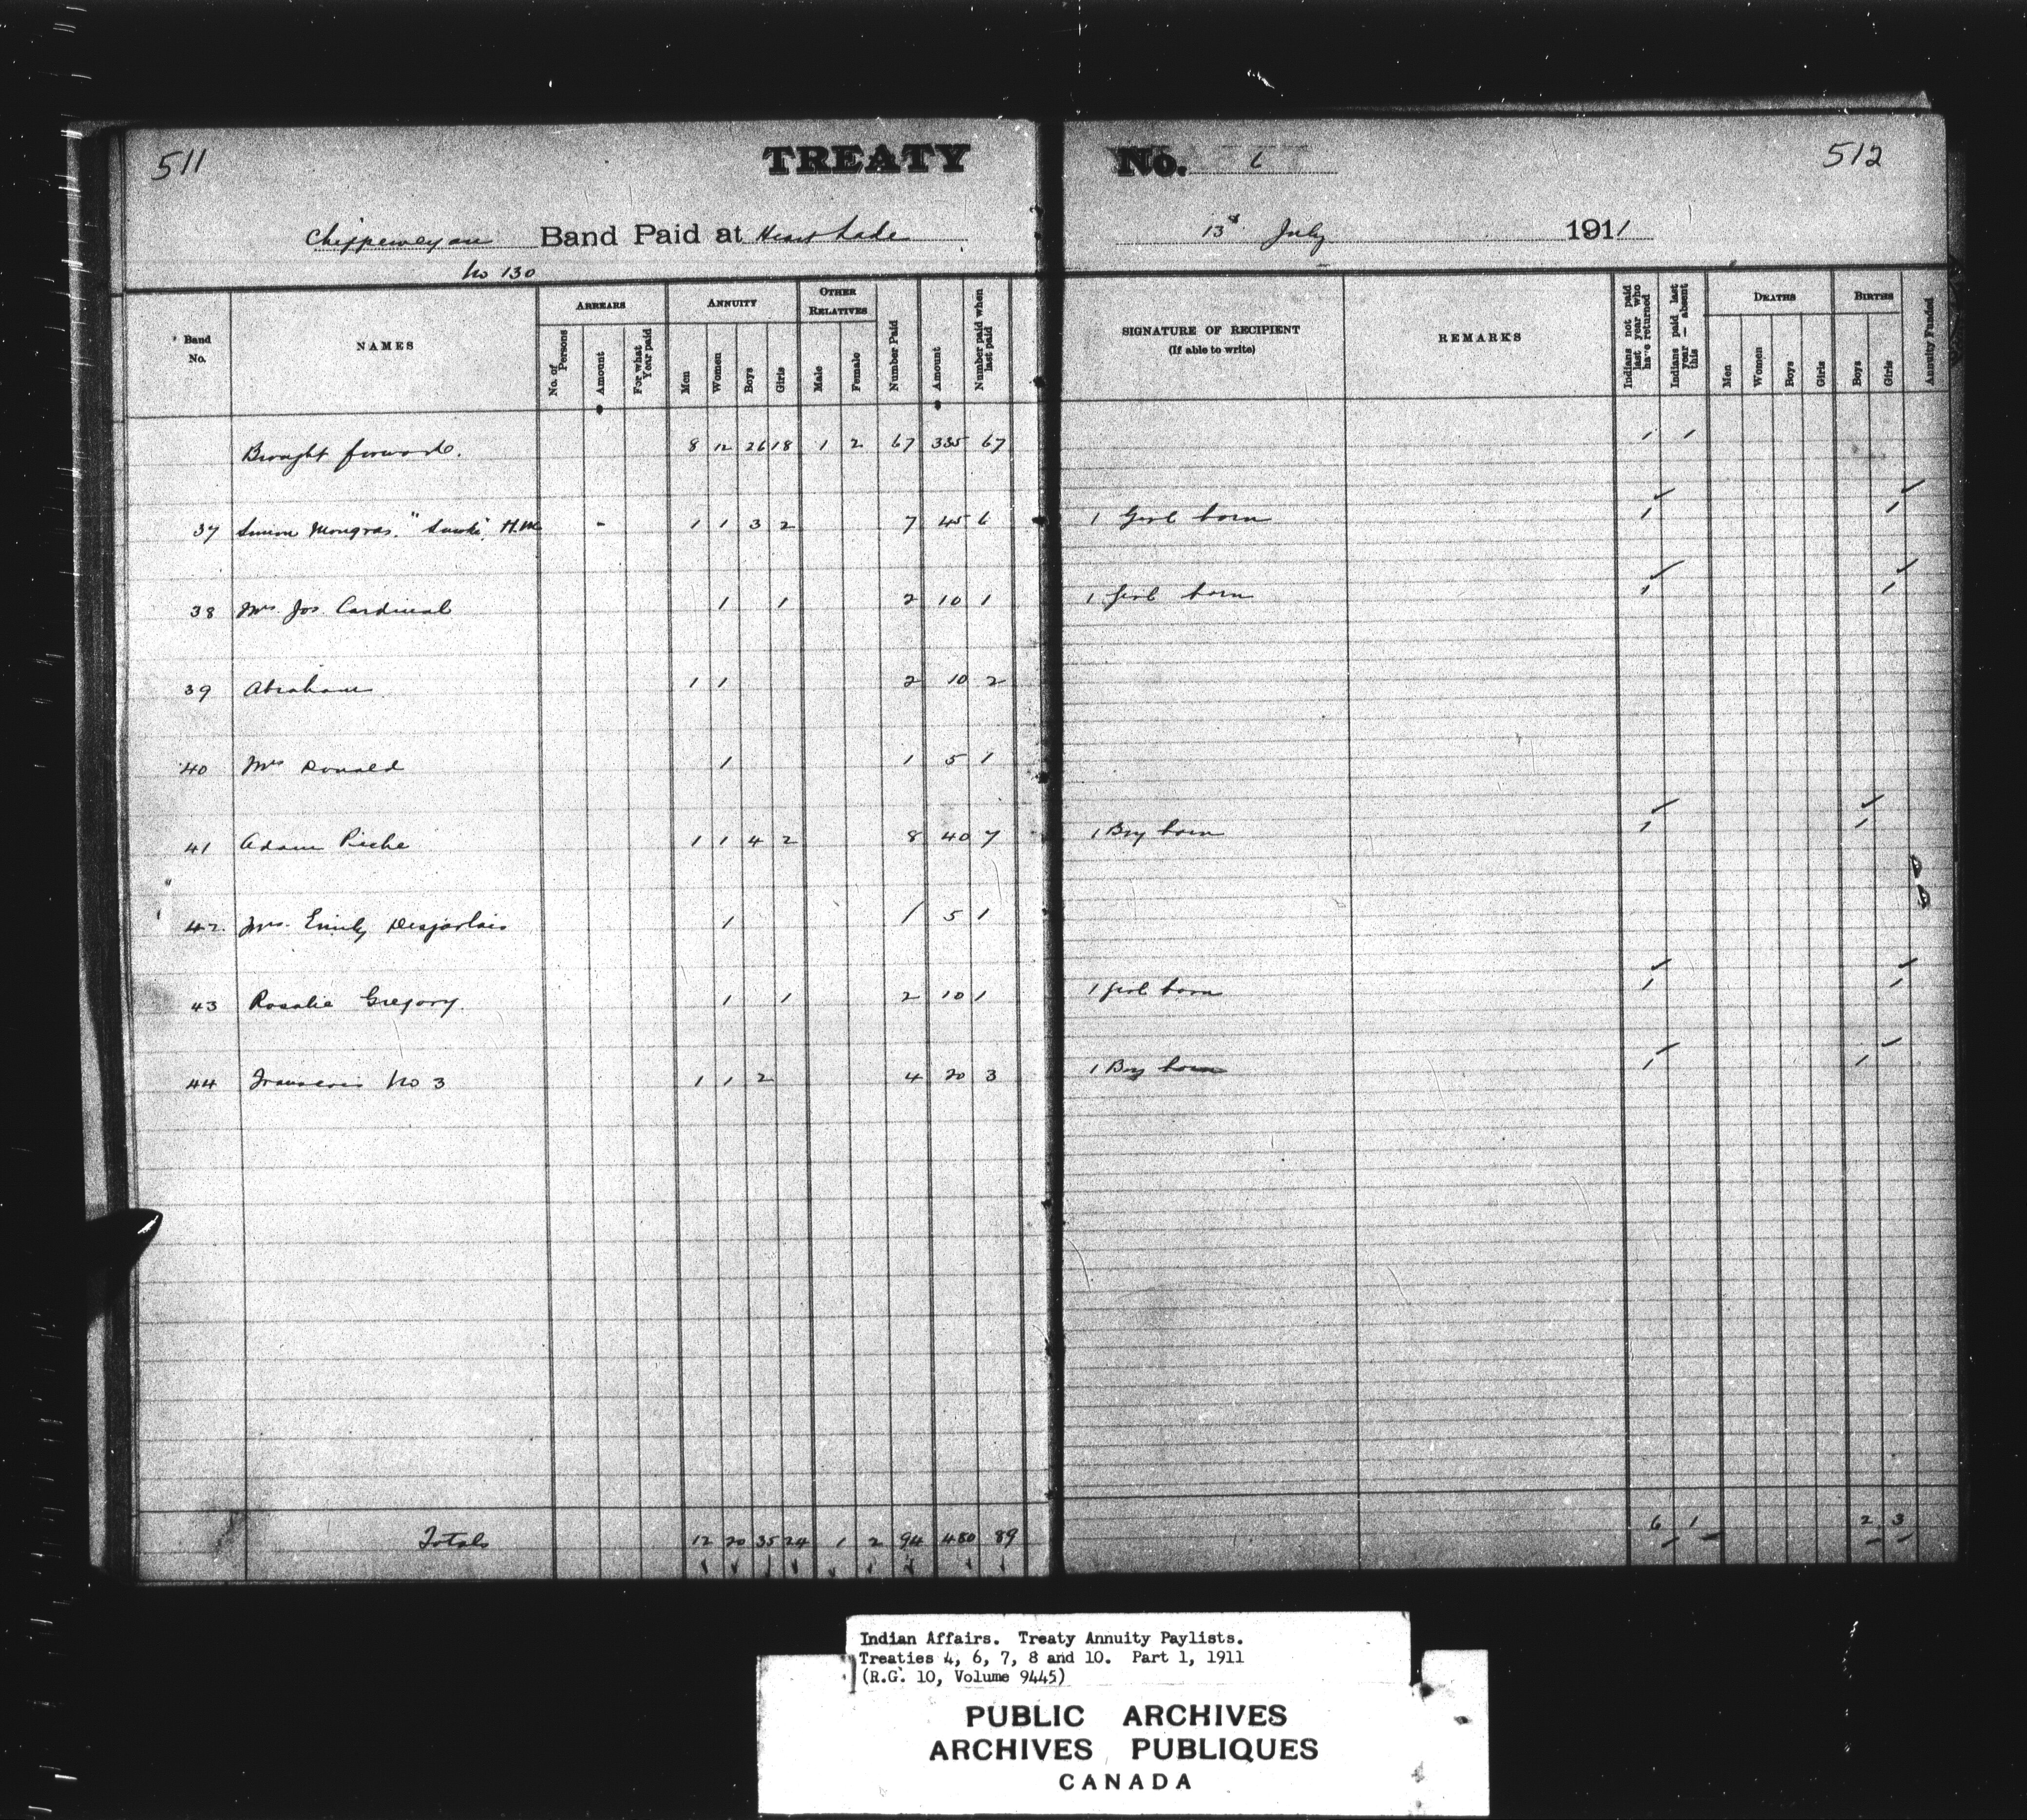 511
TREATY No. 6
512
Chippeweyan Band Paid at Heart Lake 13th July 1911
No 130
Band No. NAMES ARREARS No. of Persons Amount For what Year paid ANNUITY Men Women Boys Girls OTHER RELATIVES Male Female Number Paid Amount Number paid when last paid SIGNATURE OF RECIPIENT (If able to write) REMARKS Indians not paid last year who have returned Indians paid last year — absent this DEATHS Men Women Boys Girls BIRTHS Boys Girls Annuity Funded
Brought forward. 8 12 26 18 1 2 67 335 67 1 1
37 Simon Mongras. H.M. - 1 1 3 2 7 45 6 1 Girl born 1 1
38 Mrs Jos Cardinal 1 1 2 10 1 1 Girl born 1 1
39 Abraham 1 1 2 10 2
40 Mrs Donald 1 1 5 1
41 Adam Piche 1 1 4 2 8 40 7 1 Boy born 1 1
42 Mrs. Emily Desjarlais 1 1 5 1
43 Rosalie Gregory. 1 1 2 10 1 1 girl born 1 1
44 Francois No 3 1 1 2 4 20 3 1 Boy born 1 1
Totals 12 20 35 24 1 2 94 480 89 6 1 2 3
Indian Affairs. Treaty Annuity Paylists.
Treaties 4, 6, 7, 8 and 10. Part 1, 1911
(R.G. 10, Volume 9445)
PUBLIC ARCHIVES
ARCHIVES PUBLIQUES
CANADA